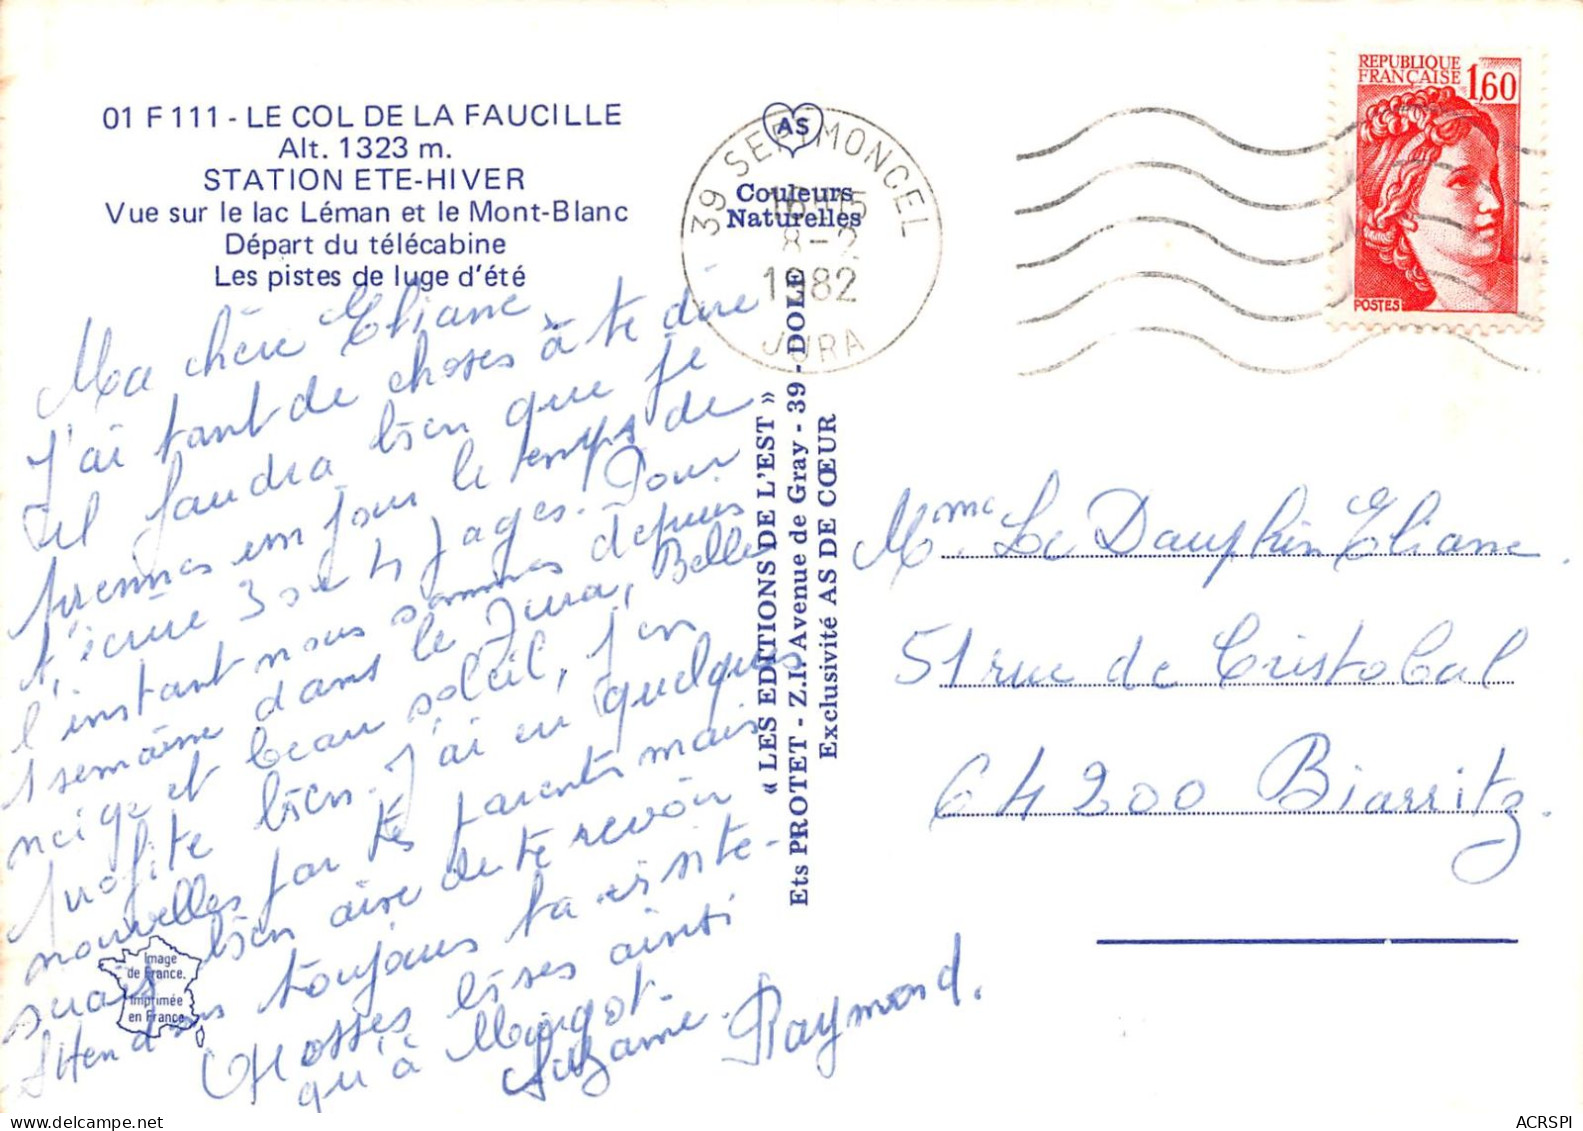 01 F 111 - LE COL DE LA FAUCILLE
Alt. 1323 m.
STATION ETE-HIVER
Vue sur le lac Léman et le Mont-Blanc
Départ du télécabine
Les pistes de luge d'été
Ma chère Eliane,
J'ai tant de choses à te dire
il faudra bien que je
prennes un jour le temps de
t'écrire 3 ou 4 pages. Pour
l'instant nous sommes depuis
1 semaine dans le Jura, Belle
neige et beau soleil, j'en
profite bien. J'ai eu quelques
nouvelles par tes parents mais
suis bien aise de te revoir
Attendons toujours ta visite.
Grosses bises ainsi
qu'à Margot.
Suzanne. Raymond.
Image
de France.
Imprimée
en France
AS
Couleurs
Naturelles
39 SEPTMONCEL
16H15
8-2
1982
JURA
« LES EDITIONS DE L'EST »
Ets PROTET - Z.I. Avenue de Gray - 39 - DOLE
Exclusivité AS DE CŒUR
REPUBLIQUE
FRANÇAISE 1,60
POSTES
Mme. Le Dauphin Eliane.
51 rue de Cristobal
64200 Biarritz.
ACRSPI